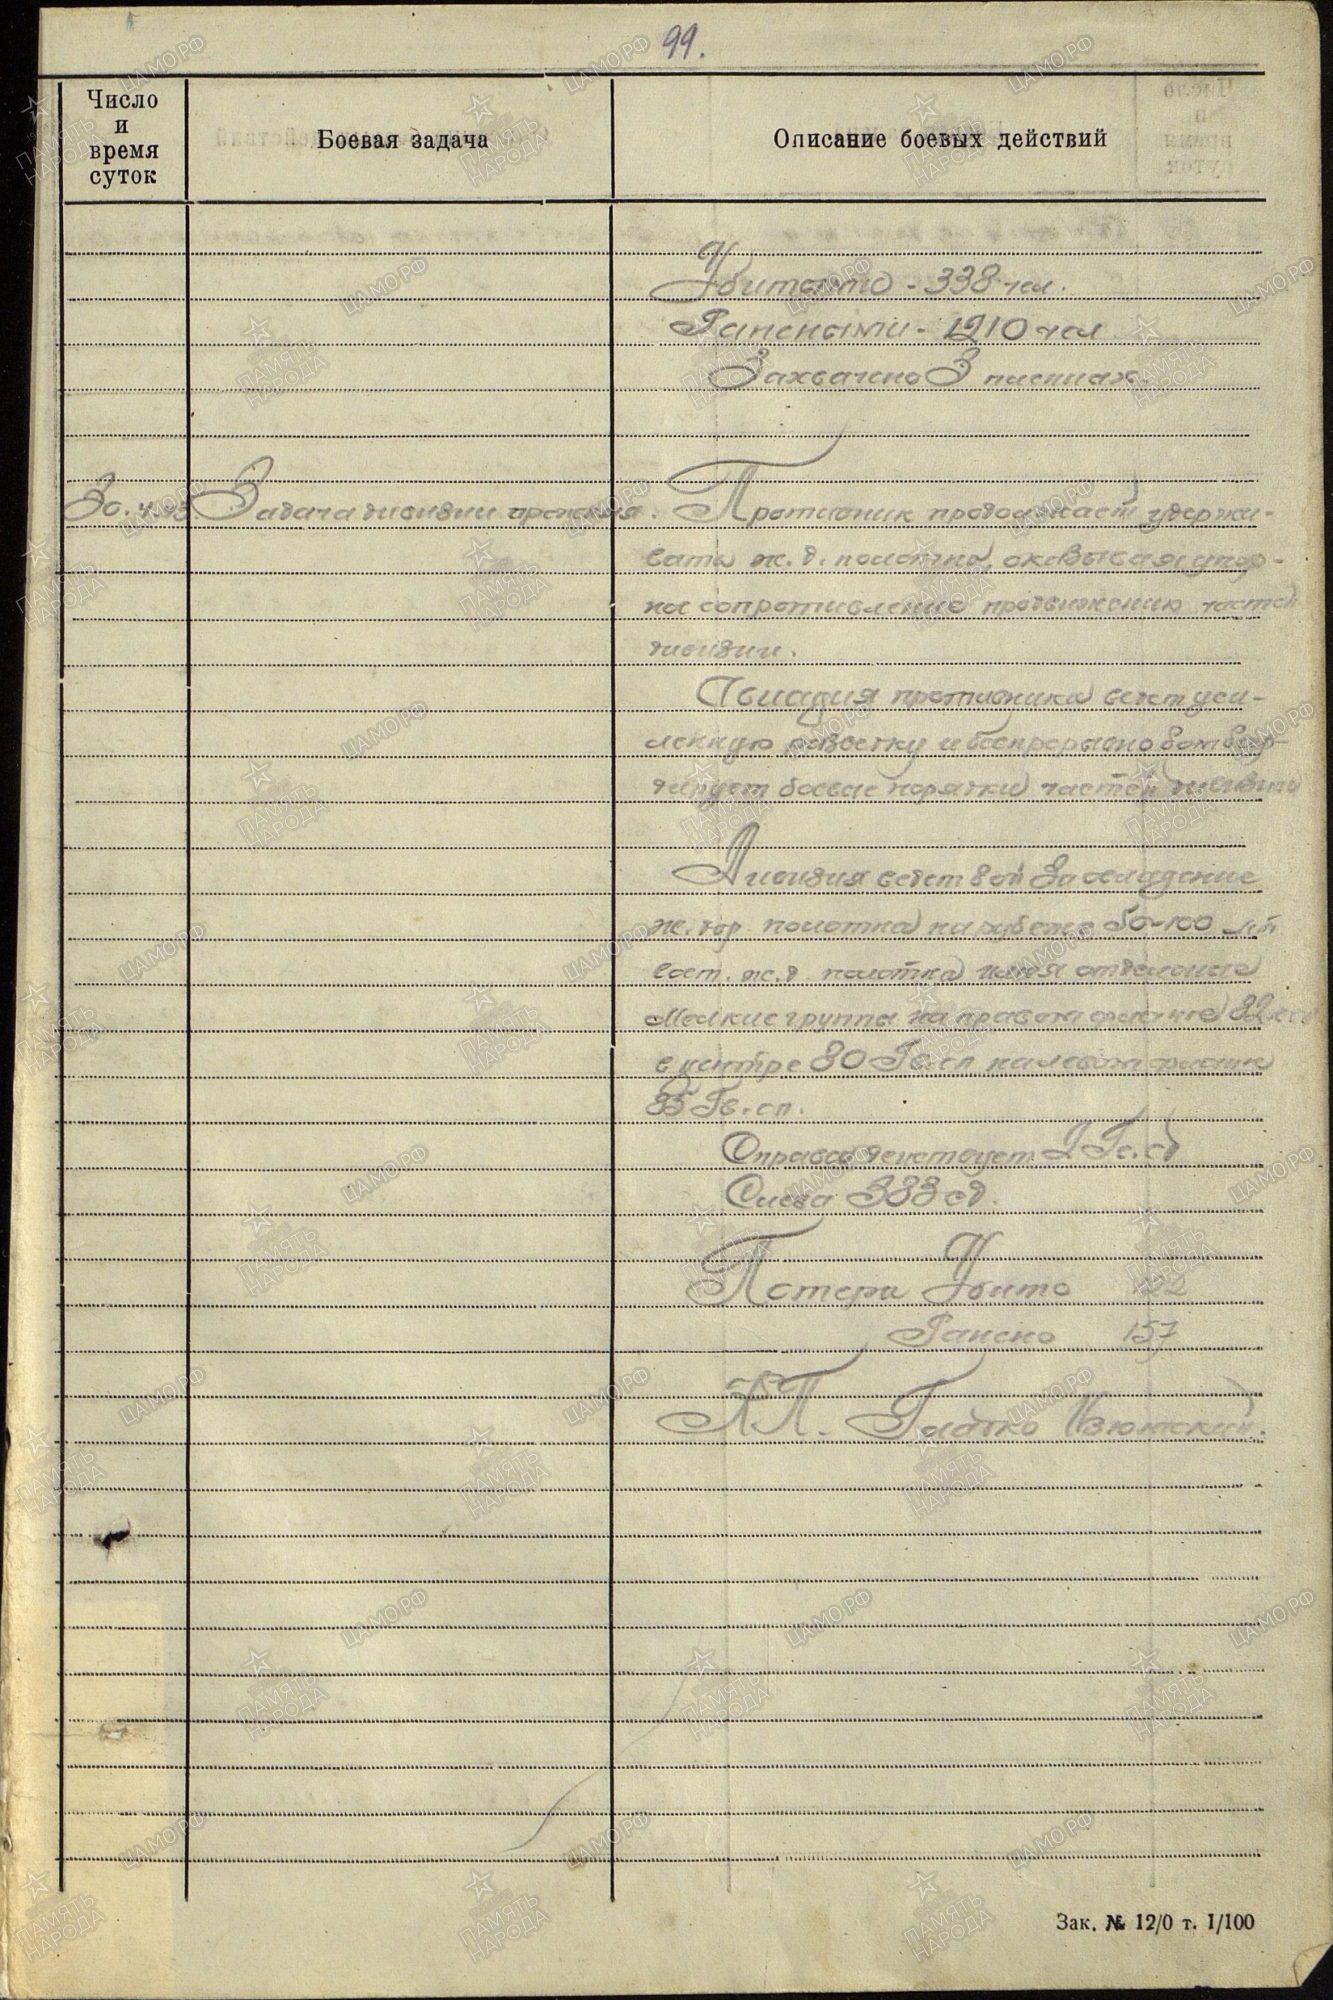 99.
Число
и
время
суток
Боевая задача
Описание боевых действий
Убитыми - 338 чел.
Ранеными - 1210 чел
Захвачено 3 пленных.
30.4.43 Задача дивизии прежняя. Противник продолжает удержи-
вать ж.д. полотно, оказывая упор-
ное сопротивление продвижению частей
дивизии.
Авиация противника ведет уси-
ленную разведку и беспрерывно бомбар-
дирует боевые порядки частей дивизии
Дивизия ведет бой за овладение
ж. дор. полотна на рубеже 50-100 мт
вост. ж.д. полотна имея отдельные
мелкие группы на правом фланге 82
в центре 80 Гв. сп на левом фланге
85 Гв. сп.
Справа действует 2 Гв. сд
Слева 383 сд.
Потери Убито 122
Ранено 157
КП.
Зак. № 12/0 т. 1/100
ЦАМО РФ
ПАМЯТЬ
НАРОДА